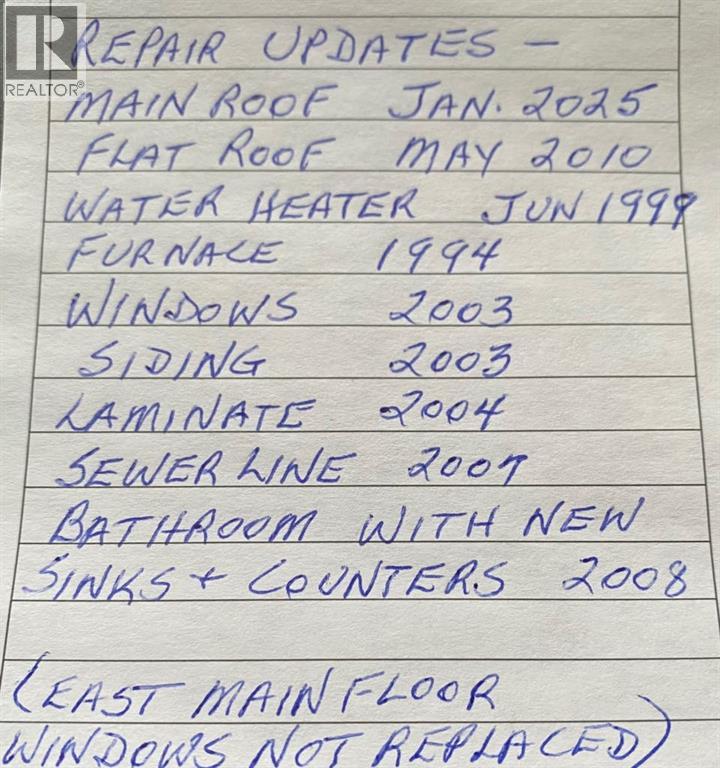 REALTOR®
REPAIR UPDATES -
MAIN ROOF JAN. 2025
FLAT ROOF MAY 2010
WATER HEATER JUN 1999
FURNACE 1994
WINDOWS 2003
SIDING 2003
LAMINATE 2004
SEWER LINE 2007
BATHROOM WITH NEW
SINKS + COUNTERS 2008
(EAST MAIN FLOOR
WINDOWS NOT REPLACED)